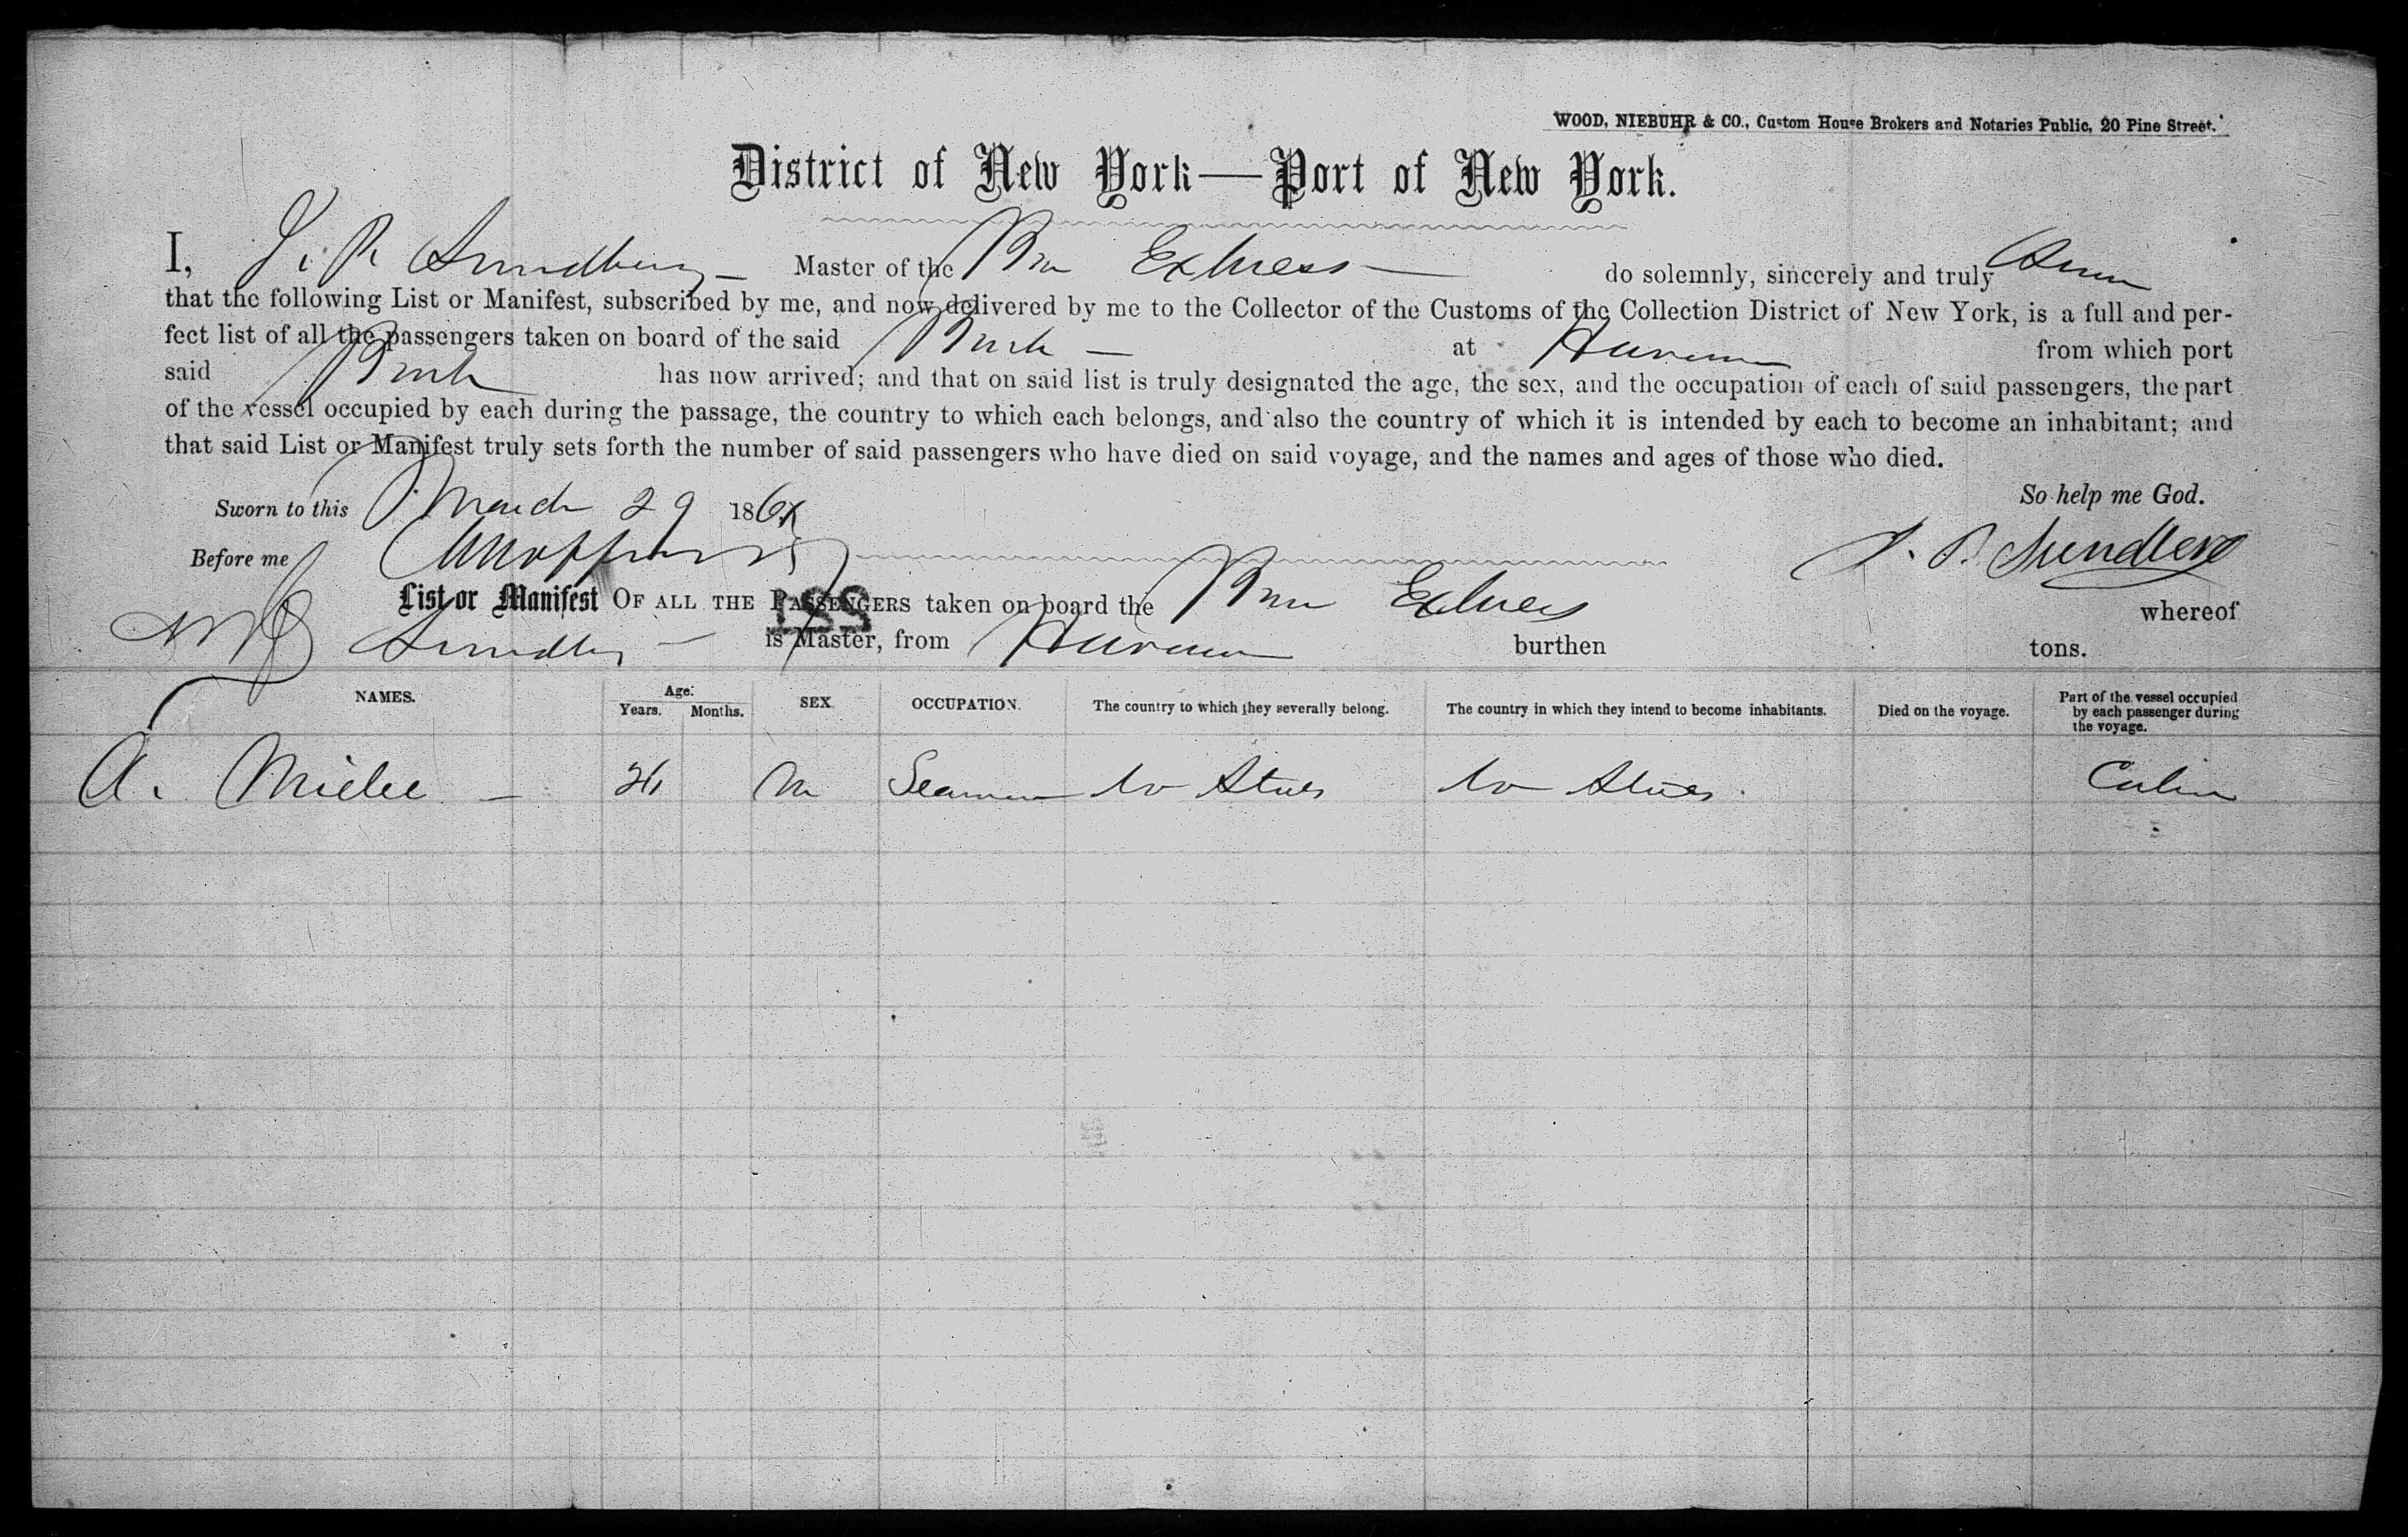 WOOD, NIEBUHR & CO., Custom House Brokers and Notaries Public, 20 Pine Street.
District of New York—Port of New York.
I, J. P. Sundberg — Master of the Express — do solemnly, sincerely and truly
that the following List or Manifest, subscribed by me, and now delivered by me to the Collector of the Customs of the Collection District of New York, is a full and per-
fect list of all the passengers taken on board of the said Bark — at Havana from which port
said Bark has now arrived; and that on said list is truly designated the age, the sex, and the occupation of each of said passengers, the part
of the vessel occupied by each during the passage, the country to which each belongs, and also the country of which it is intended by each to become an inhabitant; and
that said List or Manifest truly sets forth the number of said passengers who have died on said voyage, and the names and ages of those who died.
So help me God.
Sworn to this March 29 186
Before me
J. P. Sundberg
List or Manifest OF ALL THE PASSENGERS taken on board the Express whereof
Sundberg — is Master, from Havana burthen tons.
NAMES. Age. Years. Months. SEX. OCCUPATION. The country to which they severally belong. The country in which they intend to become inhabitants. Died on the voyage. Part of the vessel occupied by each passenger during the voyage.
A. — M Seaman U States U States Cabin